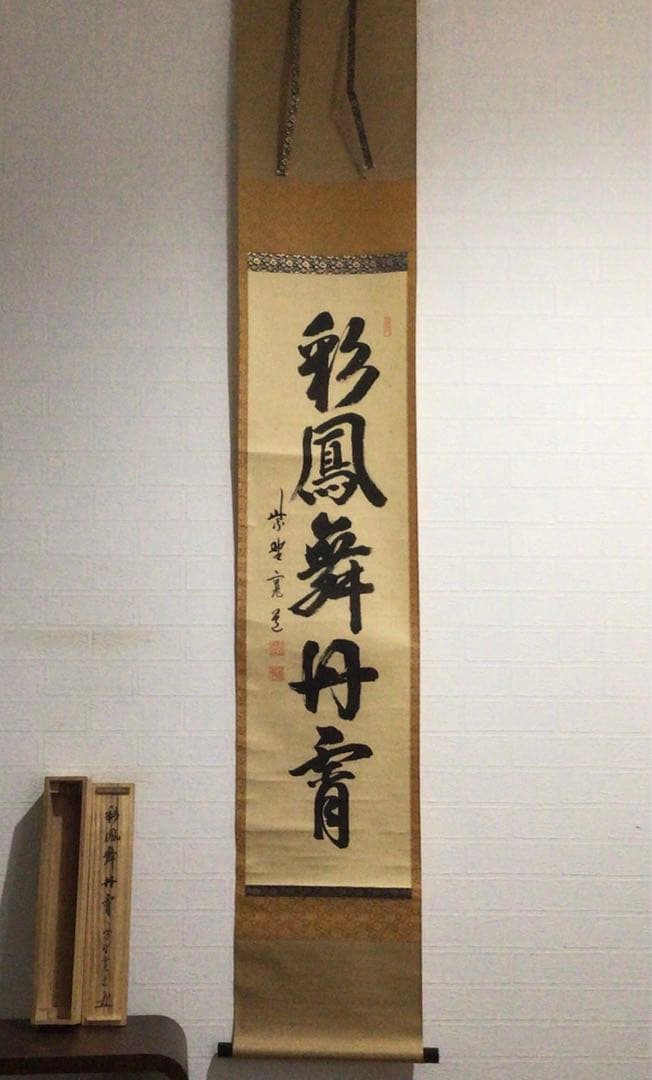 彩鳳舞丹霄
紫野寛道
彩鳳舞丹霄